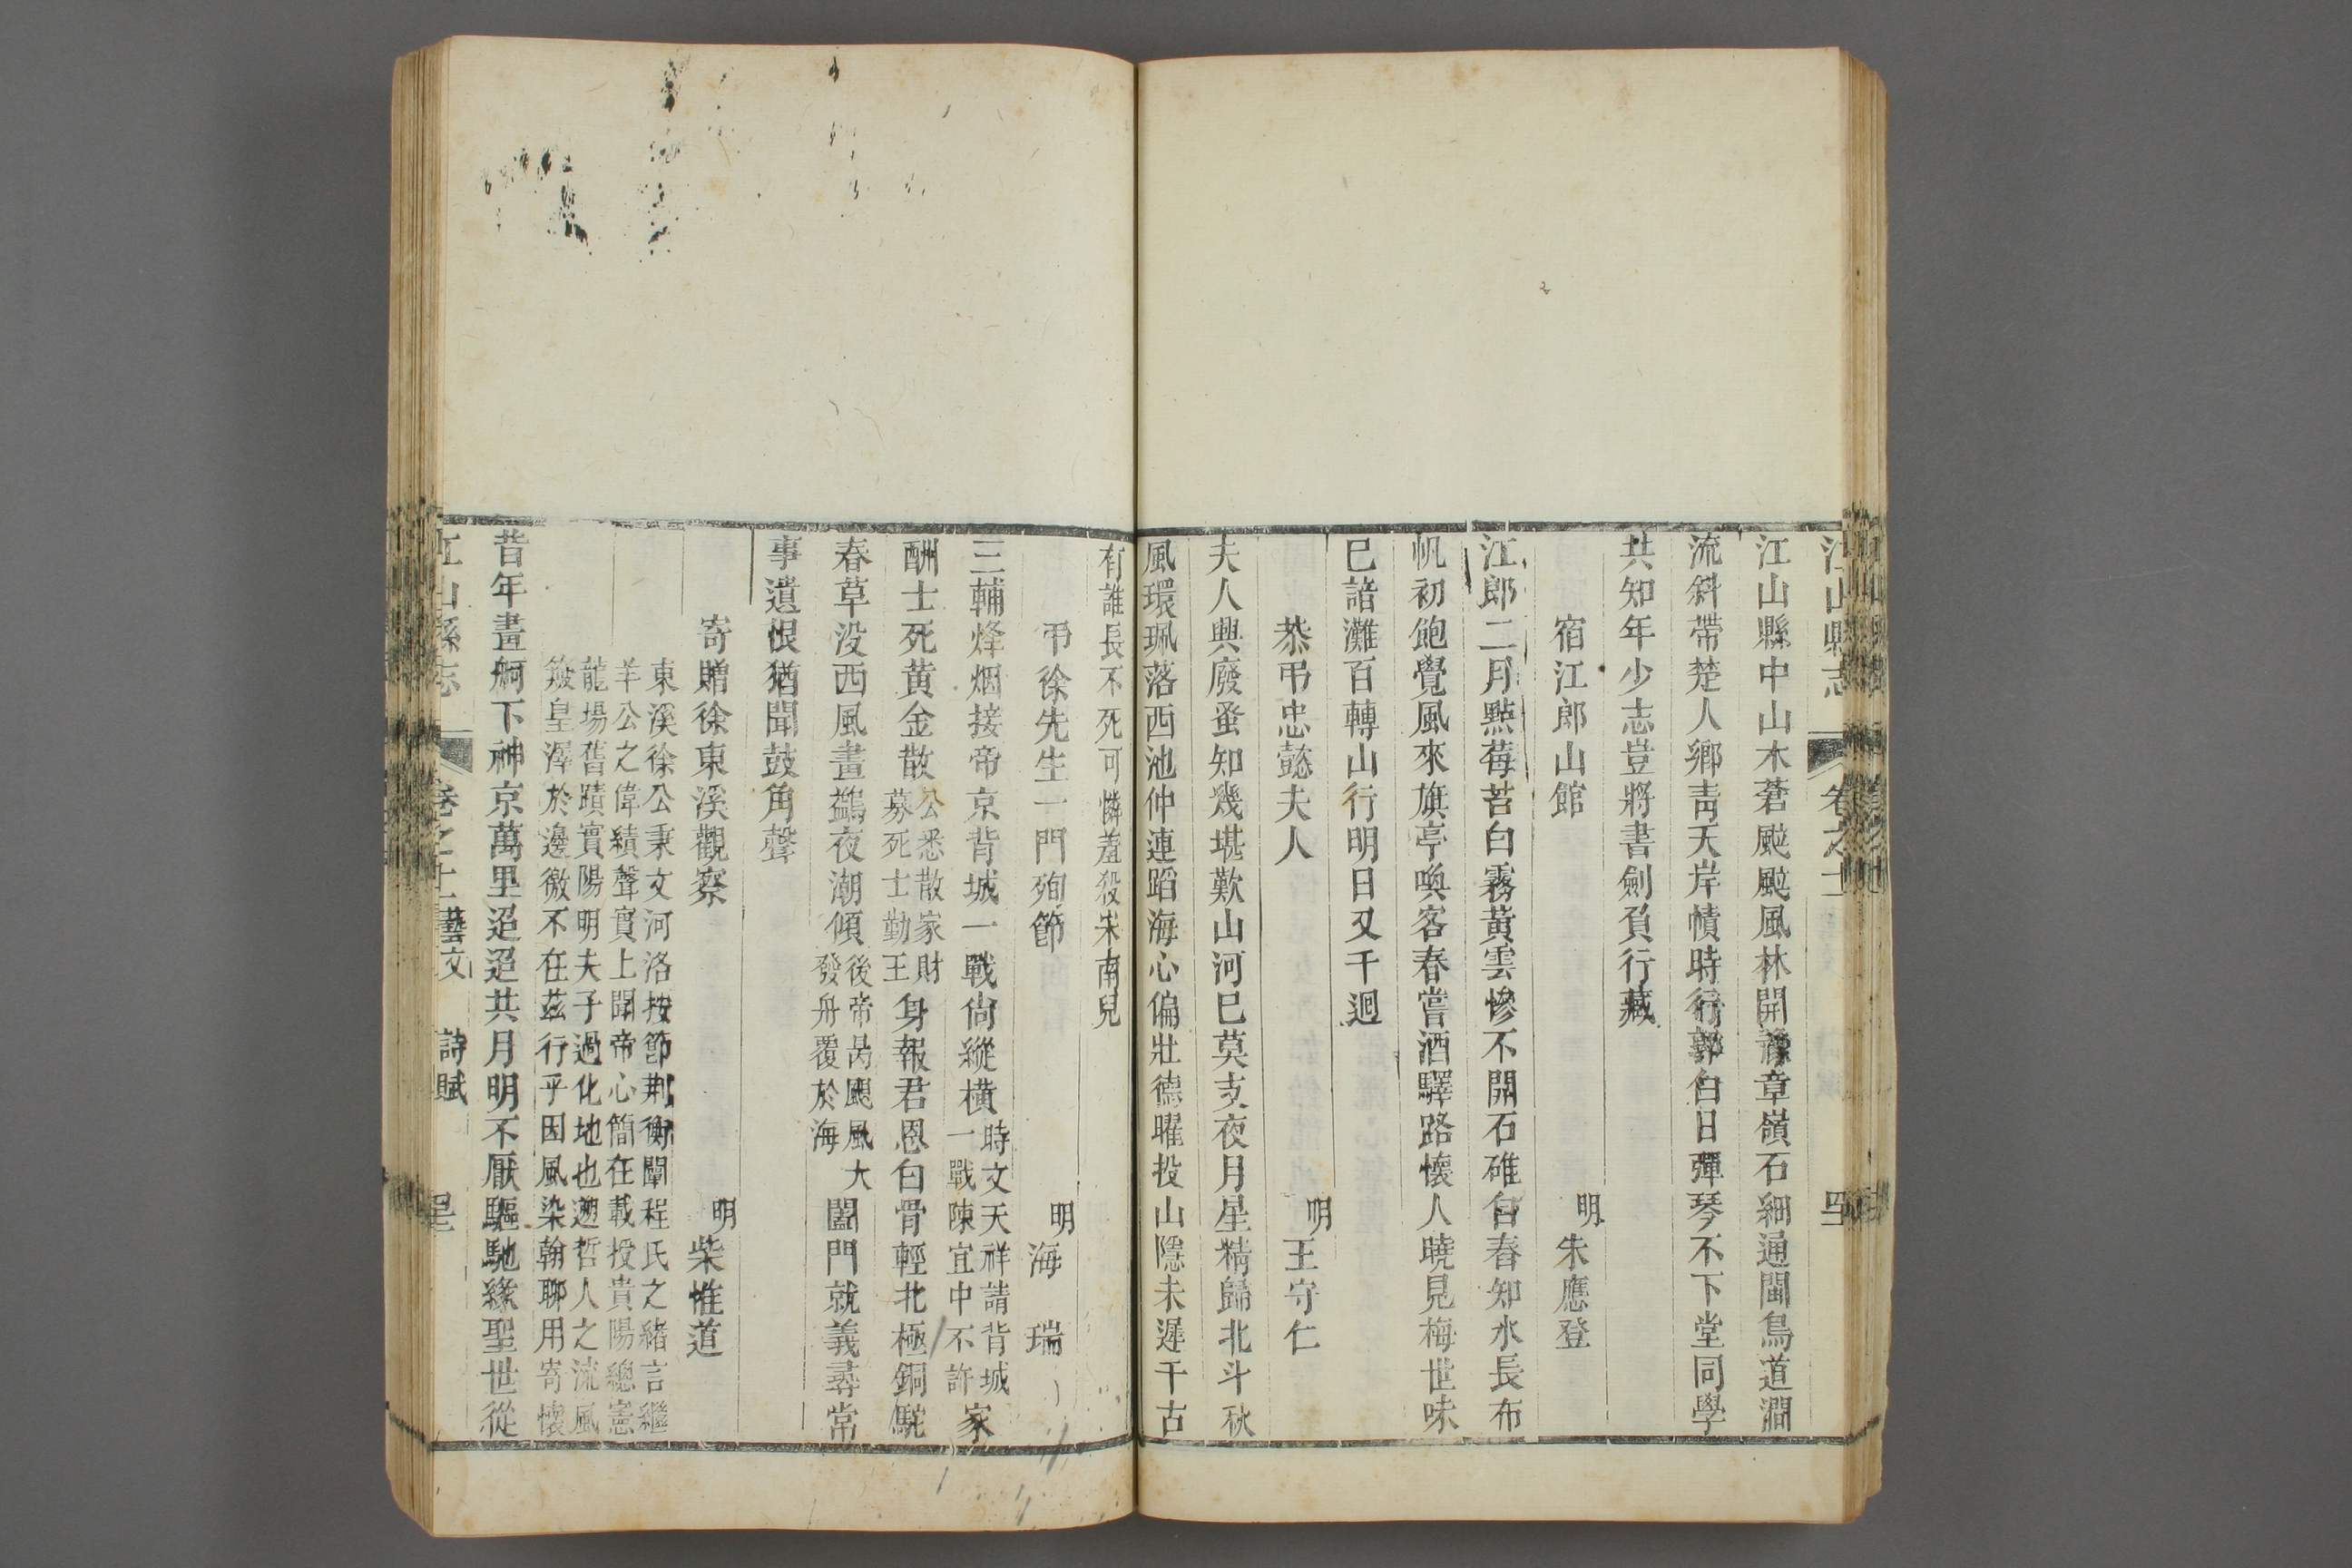 江山縣志 卷之十一
江山縣中山木蒼颼颼風林開豫章嶺石細通閩鳥道澗
流斜帶楚人鄉靑天岸幘時行郭白日彈琴不下堂同學
共知年少志豈將書劍負行藏
宿江郎山館 明 朱應登
江郎二月點莓苔白霧黃雲慘不開石碓自舂知水長布
帆初飽覺風來旗亭喚客春嘗酒驛路懷人曉見梅世味
已諳灘百轉山行明日又千迴
恭弔忠懿夫人 明 王守仁
夫人興廢蚤知幾堪歎山河已莫支夜月星精歸北斗秋
風環珮落西池仲連蹈海心偏壯德曜投山隱未遲千古
有誰長不死可憐羞殺宋南兒
弔徐先生一門殉節 明 海 瑞
三輔烽烟接帝京背城一戰尙縱橫時文天祥請背城一戰陳宜中不許家
酬士死黃金散公悉散家財募死士勤王身報君恩白骨輕北極銅駝
春草没西風畫鷁夜潮傾後帝昺颶風大發舟覆於海闔門就義尋常
事遺恨猶聞鼓角聲
寄贈徐東溪觀察 明 柴惟道
東溪徐公秉文河洛按節荆衡闡程氏之緒言繼
羊公之偉績聲實上聞帝心簡在載授貴陽總憲
龍場舊蹟實陽明夫子過化地也遡哲人之流風
敭皇澤於邊徼不在茲行乎因風染翰聊用寄懷
昔年畫舸下神京萬里迢迢共月明不厭驅馳緣聖世從
江山縣志 卷之十一 藝文 詩賦